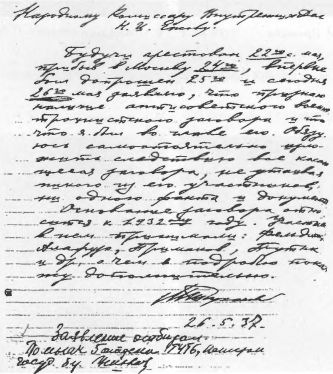 Народному Комиссару Внутренних Дел
Н. И. Ежову.
Будучи арестован 22го мая,
прибыв в Москву 24го, впервые
был допрошен 25го и сегодня
26го мая заявляю, что признаю
наличие антисоветского военно-
троцкистского заговора и то
что я был во главе его. Обязу-
юсь самостоятельно изло-
жить следствию все касаю-
щееся заговора, не утаивая
никого из его участников,
ни одного факта и документа.
Основание заговора отно-
сится к 1932му году. Участие
в нем принимали: Фельдман,
Алафузо, Примаков, Путна
и др., о чем я подробно пока-
жу дополнительно.
Тухачевский
26.5.37.
Заявление отобрал
Пом нач 5 отдела ГУГБ, капитан
госуд. без.